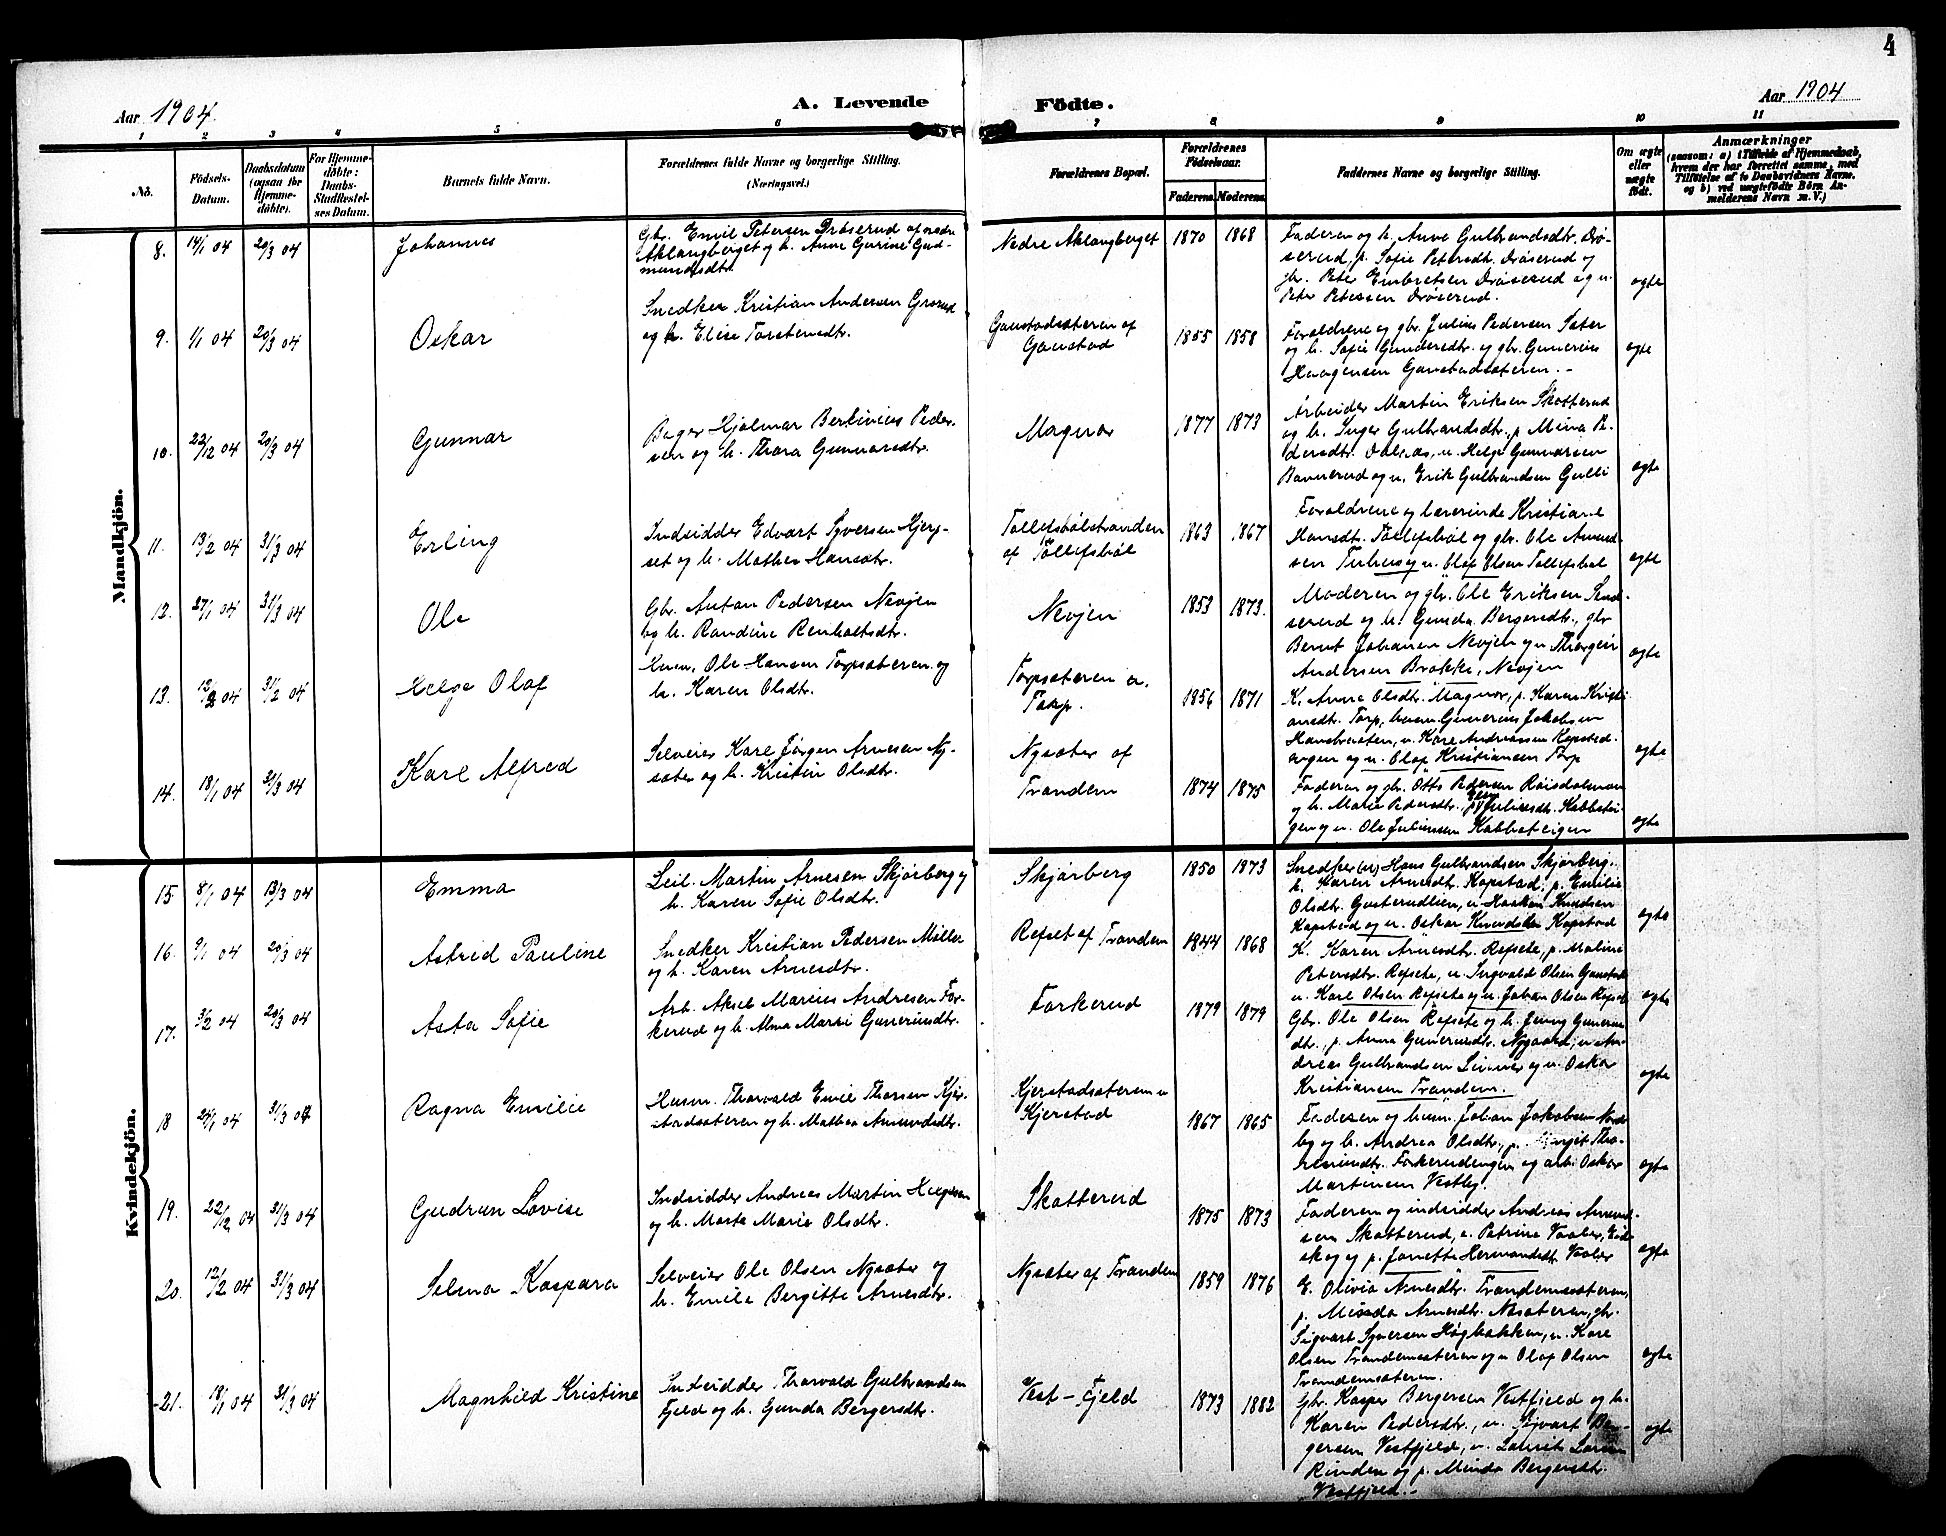 4
Aar 1904.
A. Levende
Födte.
Aar 1904
1 2 3 4 5 6 7 8 9 10 11
No.
Födsels-
Datum.
Daabsdatum
(ogsaa for
Hjemme-
döbte).
For Hjemme-
döbte:
Daabs-
Stadfæstel-
ses Datum.
Barnets fulde Navn.
Forældrenes fulde Navne og borgerlige Stilling.
(Næringsvei.)
Forældrenes Bopæl.
Forældrenes
Födselsaar.
Faderens. Moderens.
Faddernes Navne og borgerlige Stilling.
Om ægte
eller
uægte
födt.
Anmærkninger
(saasom: a) i Tilfælde af Hjemmedaab,
hvem der har forrettet samme, med
Tilföielse af to Daabsvidners Navne,
og b) ved uægtefödte Börn An-
melderens Navn m. V.)
Mandkjön.
8. 14/1 04 20/3 04 Johannes
Gbr. Emil Petersen Dröserud af nedre
Aklangberget og h. Anne Gurine Gud-
mundsdtr.
Nedre Aklangberget 1870 1868
Faderen og h. Anne Gulbrandsdtr. Drö-
serud, p. Sofie Petersdtr. Dröserud og
gbr. Peter Embretsen Dröserud og u.
Peter Petersen Dröserud.
ægte
9. 1/1 04 20/3 04 Oskar
Snedker Kristian Andersen Grorud
og h. Elise Torstensdtr.
Gaustadsæteren af
Gaustad
1855 1858
Forældrene og gbr. Julius Pedersen Sæter
og h. Sofie Gundersdtr. og gbr. Gunerius
Haagensen Gaustadsæteren. -
ægte
10. 22/12 04 20/3 04 Gunnar
Bager Hjalmar Berlivius Peder-
sen og h. Thora Gunnarsdtr.
Magnor 1877 1873
Arbeider Martin Eriksen Skotterud
og h. Inger Gulbrandsdtr., p. Mina Pe-
dersdtr. Dalsaas, u. Helge Gunnarsen
Bavnerud og u. Erik Gulbrandsen Gulli
ægte
11. 13/2 04 31/3 04 Erling
Indsidder Edvart Syversen Hjerp-
set og h. Mathea Hansdtr.
Tollefsbölstranden
af Töllefsböl
1863 1867
Forældrene og lærerinde Kristiane
Hansdtr. Tollefsböl og gbr. Ole Amund-
sen og u. Olaf Olsen Tollefsböl
ægte
12. 27/1 04 31/3 04 Ole
Gbr. Antan Pedersen Nevjen
og h. Randine Renholtsdtr.
Nevjen 1853 1873.
Moderen og gbr. Ole Eriksen Sand-
serud og h. Gunda Bergersdtr., gbr
Bernt Johansen Nevjen og u. Thorgeir
Andersen Brække, Nevjen
ægte
13. 12/2 04 31/2 04 Helge Olaf
Husm. Ole Hansen Torpsæteren og
h. Karen Olsdtr.
Torpsæteren a.
Torp.
1856 1871
K. Anna Olsdtr. Magnor, p. Karen Kristi-
ansdtr. Torp, husm. Gunerius Jakobsen
u. Kare Andreassen Kopstad-
og u. Olaf Kristiansen Torp
ægte
14. 18/1 04 31/3 04 Karl Alfred
Selveier Karl Jörgen Arnesen Ny-
sæter og h. Kristin Olsdtr.
Nysæter af
Trandem
1874 1875
Faderen og gbr. Otto Pedersen
og h. Marie Pedersdtr., p. Juliusdtr. Kabbstei-
gen og u. Ole Juliussen Kabbsteigen
ægte
Kvindekjön.
15. 8/1 04 13/3 04 Emma
Leil. Martin Arnesen Skjörberg og
h. Karen Sofie Olsdtr.
Skjörberg 1850 1873
Snedker Hans Gulbrandsen Skjörberg,
h. Karen Arnesdtr. Kopstad, p. Emilie
Olsdtr. u. Haaken Knudsen
Kopstad og u. Oskar Kopstad
ægte
16. 9/1 04 20/3 04 Astrid Pauline
Snedker Kristian Pedersen Möller
og h. Karen Arnesdtr.
Refset af Trandem 1844 1868
K. Karen Arnesdtr. Refsete, p. Maline
Petersdtr. Refsete, u. Ingvald Olsen Gaustad
u. Karl Olsen Refsete og u. Johan Olsen Refset
ægte
17. 3/2 04 20/3 04 Asta Sofie
Arb. Aksel Marius Andresen For-
kerud og h. Alma Marie Gunerusdtr.
Forkerud 1879 1879
Gbr. Ole Olsen Refsete og h. Jenny Guneru-
dtr., p. Anna Gunerusdtr. Nygaard, u. An-
dreas Gulbrandsen og u. Oskar
Kristiansen Trandem.
ægte
18 24/1 04 31/3 04 Ragna Emilie
Husm. Thorvald Emil Thorsen Kjer-
stadsæteren og h. Mathea Amundsdtr.
Kjerstadsæteren u
Kjerstad
1867 1865
Faderen og husm. Johan Jakobsen Nord-
by og h. Andrea Olsdtr., p. Margit Tho-
Forkerudengen og arb. Oskar
Martinsen Vestby
ægte
19. 22/12 04 31/3 04 Gudrun Lovise
Indsidder Andreas Martin Helgesen
og h. Marte Marie Olsdtr.
Skotterud 1875 1873
Faderen og indsidder Andreas Amund-
sen Skotterud, u. Petrine Vaaler, Eid-
skog og p. Janette Hermandsdtr. Vaaler
ægte
20. 12/2 04 31/3 04 Selma Kaspara
Selveier Ole Olsen Nysæter og
h. Emile Bergitte Arnesdtr.
Nysæter af Trandem 1859 1876
E. Olivia Arnesdtr. Trandemsæteren,
p. Minda Arnesdtr. Nysæteren, gbr.
Sigvart Syversen Högbakken, u. Karl
Olsen Trandemsæteren og u. Olaf Olsen
Trandemsæteren.
ægte
21. 18/1 04 31/3 04 Magnhild Kristine
Indsidder Thorvald Gulbrandsen
Fjeld og h. Gunda Bergersdtr.
Vest-Fjeld 1873 1882
Gbr. Kasper Bergersen Vestfjeld og h.
Karen Pedersdtr., u. Sigvart Ber-
gersen Vestfjeld, u. Laurits Larsen
Rinden og p. Minda Bergersdtr.
Vestfjeld. -
ægte